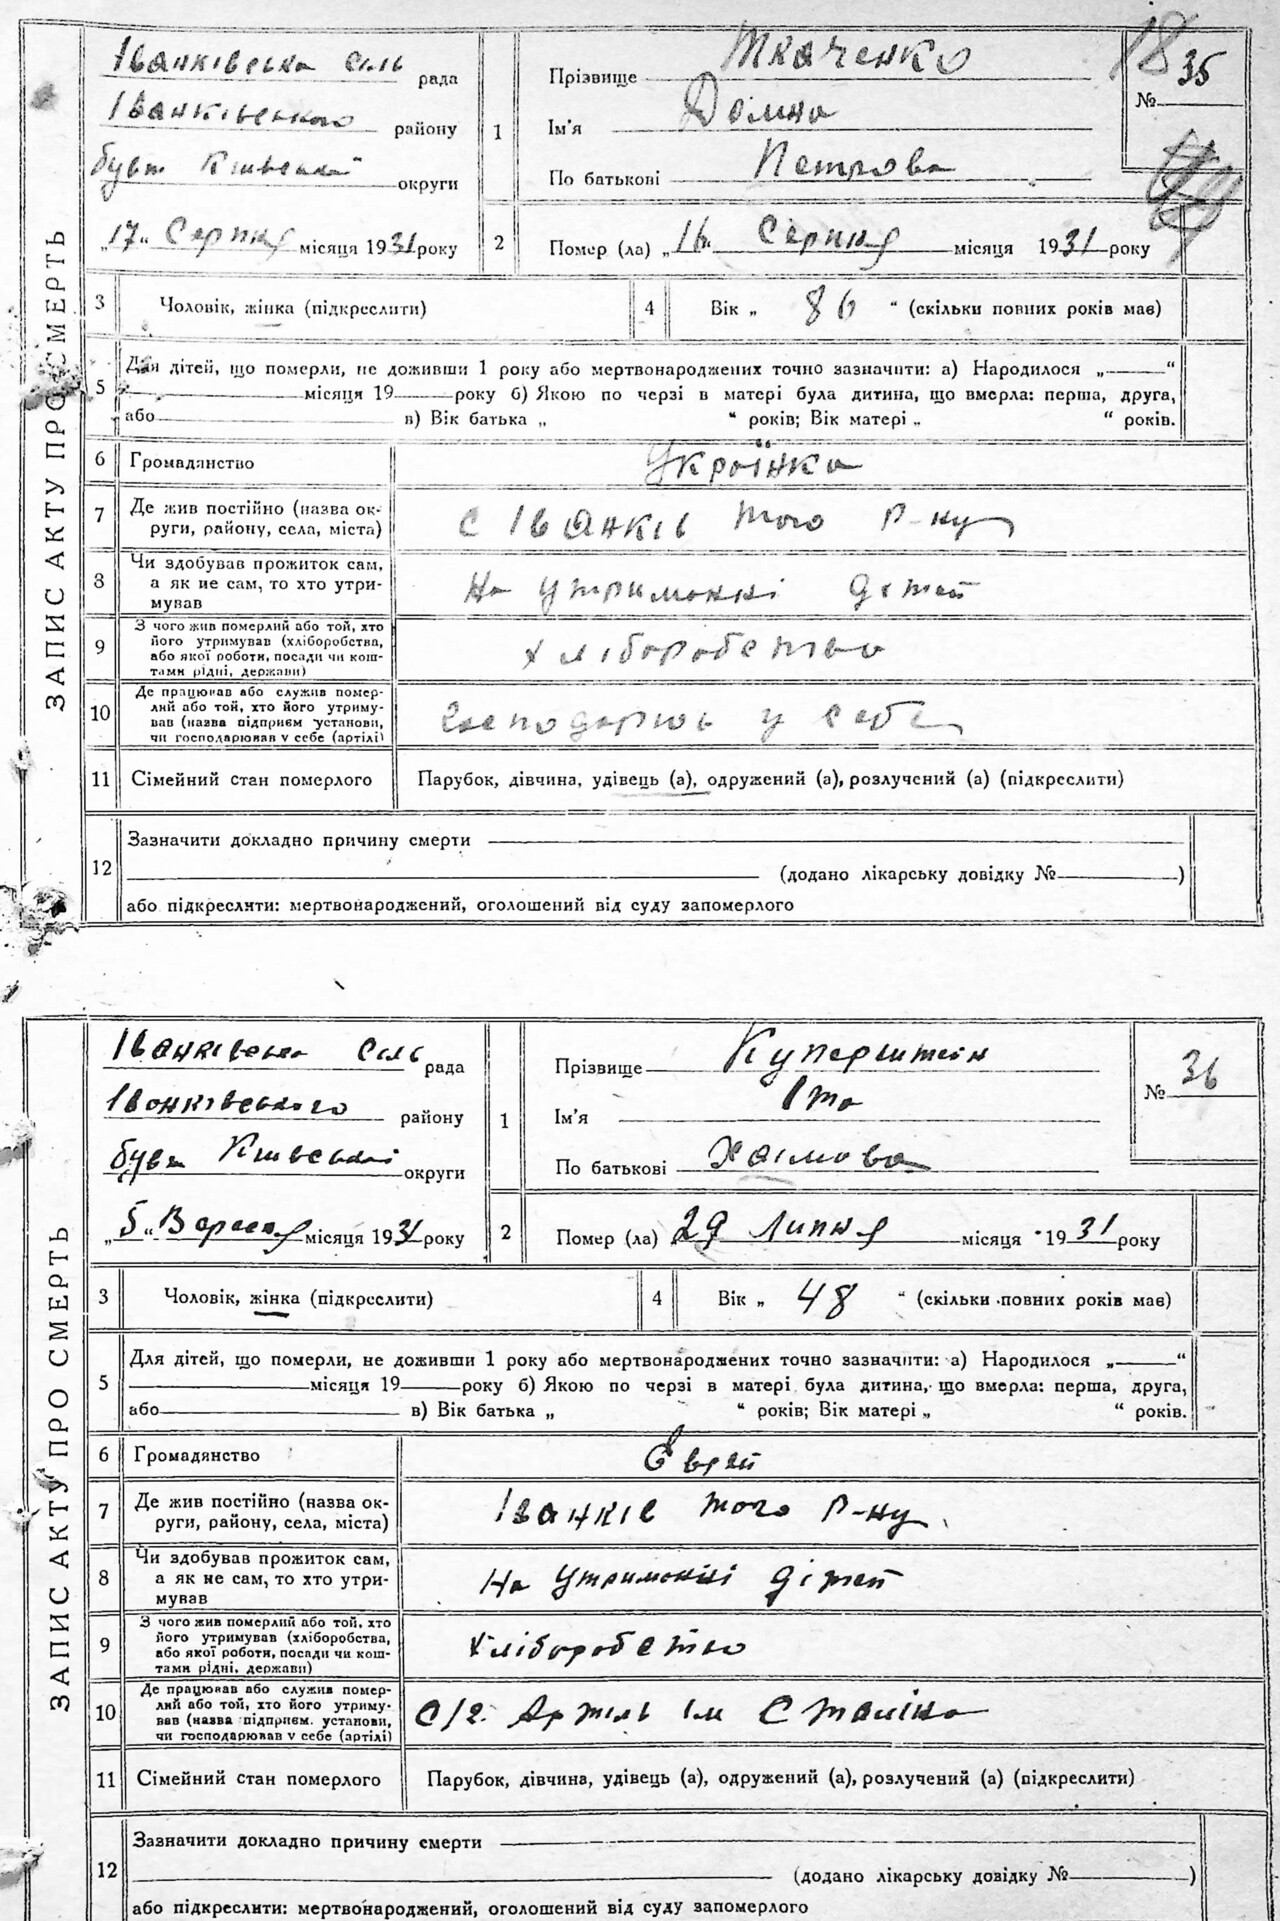 ЗАПИС АКТУ ПРО СМЕРТЬ
Іванківська сіль рада
Іванківського району
бувш Київської округи
„17“ Серпня місяця 1931 року
1
Прізвище Ткаченко
Ім'я Домна
По батькові Петрова
18
№ 35
2
Помер (ла) „16“ Серпня місяця 1931 року
3
Чоловік, жінка (підкреслити)
4
Вік „ 86 “ (скільки повних років мав)
5
Для дітей, що померли, не доживши 1 року або мертвонароджених точно зазначити: а) Народилося „ “
місяця 19 року б) Якою по черзі в матері була дитина, що вмерла: перша, друга,
або в) Вік батька „ “ років; Вік матері „ “ років.
6
Громадянство
Українка
7
Де жив постійно (назва ок-
руги, району, села, міста)
с Іванків того р-ну
8
Чи здобував прожиток сам,
а як не сам, то хто утри-
мував
На утриманні дітей
9
З чого жив померлий або той, хто
його утримував (хліборобства,
або якої роботи, посади чи кош-
тами рідні, держави)
хліборобство
10
Де працював або служив помер-
лий або той, хто його утриму-
вав (назва підприєм установи,
чи господарював у себе (артілі)
господарює у себе
11
Сімейний стан померлого
Парубок, дівчина, удівець (а), одружений (а), розлучений (а) (підкреслити)
12
Зазначити докладно причину смерти
(додано лікарську довідку № )
або підкреслити: мертвонароджений, оголошений від суду запомерлого
ЗАПИС АКТУ ПРО СМЕРТЬ
Іванківська сіль рада
Іванківського району
бувш Київської округи
„5“ Вересня місяця 1931 року
1
Прізвище Куперштеін
Ім'я Іта
По батькові Хаімова
№ 36
2
Помер (ла) 29 Липня місяця 1931 року
3
Чоловік, жінка (підкреслити)
4
Вік „ 48 “ (скільки повних років мав)
5
Для дітей, що померли, не доживши 1 року або мертвонароджених точно зазначити: а) Народилося „ “
місяця 19 року б) Якою по черзі в матері була дитина, що вмерла: перша, друга,
або в) Вік батька „ “ років; Вік матері „ “ років.
6
Громадянство
Єврей
7
Де жив постійно (назва ок-
руги, району, села, міста)
Іванків того р-ну
8
Чи здобував прожиток сам,
а як не сам, то хто утри-
мував
На утриманні дітей
9
З чого жив померлий або той, хто
його утримував (хліборобства,
або якої роботи, посади чи кош-
тами рідні, держави)
хліборобство
10
Де працював або служив помер-
лий або той, хто його утриму-
вав (назва підприєм. установи,
чи господарював у себе (артілі)
С/г. Артіль ім Сталіна
11
Сімейний стан померлого
Парубок, дівчина, удівець (а), одружений (а), розлучений (а) (підкреслити)
12
Зазначити докладно причину смерти
(додано лікарську довідку № )
або підкреслити: мертвонароджений, оголошений від суду запомерлого